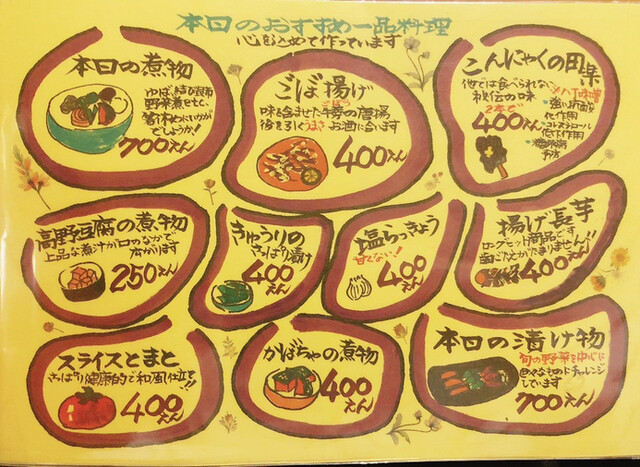 本日のおすすめ一品料理
心を込めて作っています
本日の煮物
ゆば、結び昆布
野菜煮など、
箸休めにいかが
でしょうか!
700えん
ごぼ揚げ
味を含ませた牛蒡の唐揚
ごぼう
後を引くうまさ お酒に合います
400えん
こんにゃくの田楽
他では食べられない
秘伝の味
2本で
400えん
八丁味噌
・強い抗酸
化作用
・コレステロール
低下作用
・糖尿病
予防
高野豆腐の煮物
上品な煮汁が口のなかで
広がります
250えん
きゅうりの
さっぱり漬け
400えん
塩らっきょう
甘くない!
400えん
揚げ長芋
ロングヒット商品です
歯ごたえがたまりません!!
400えん
スライスとまと
さっぱり健康的で和風仕立て!!
400えん
かぼちゃの煮物
400えん
本日の漬け物
旬の野菜を中心に
色々なものにチャレンジ
しています
700えん